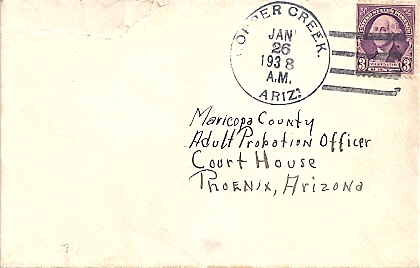 COPPER CREEK.
JAN
26
1938
A.M.
ARIZ.
3 3
Maricopa County
Adult Probation Officer
Court House
Phoenix, Arizona